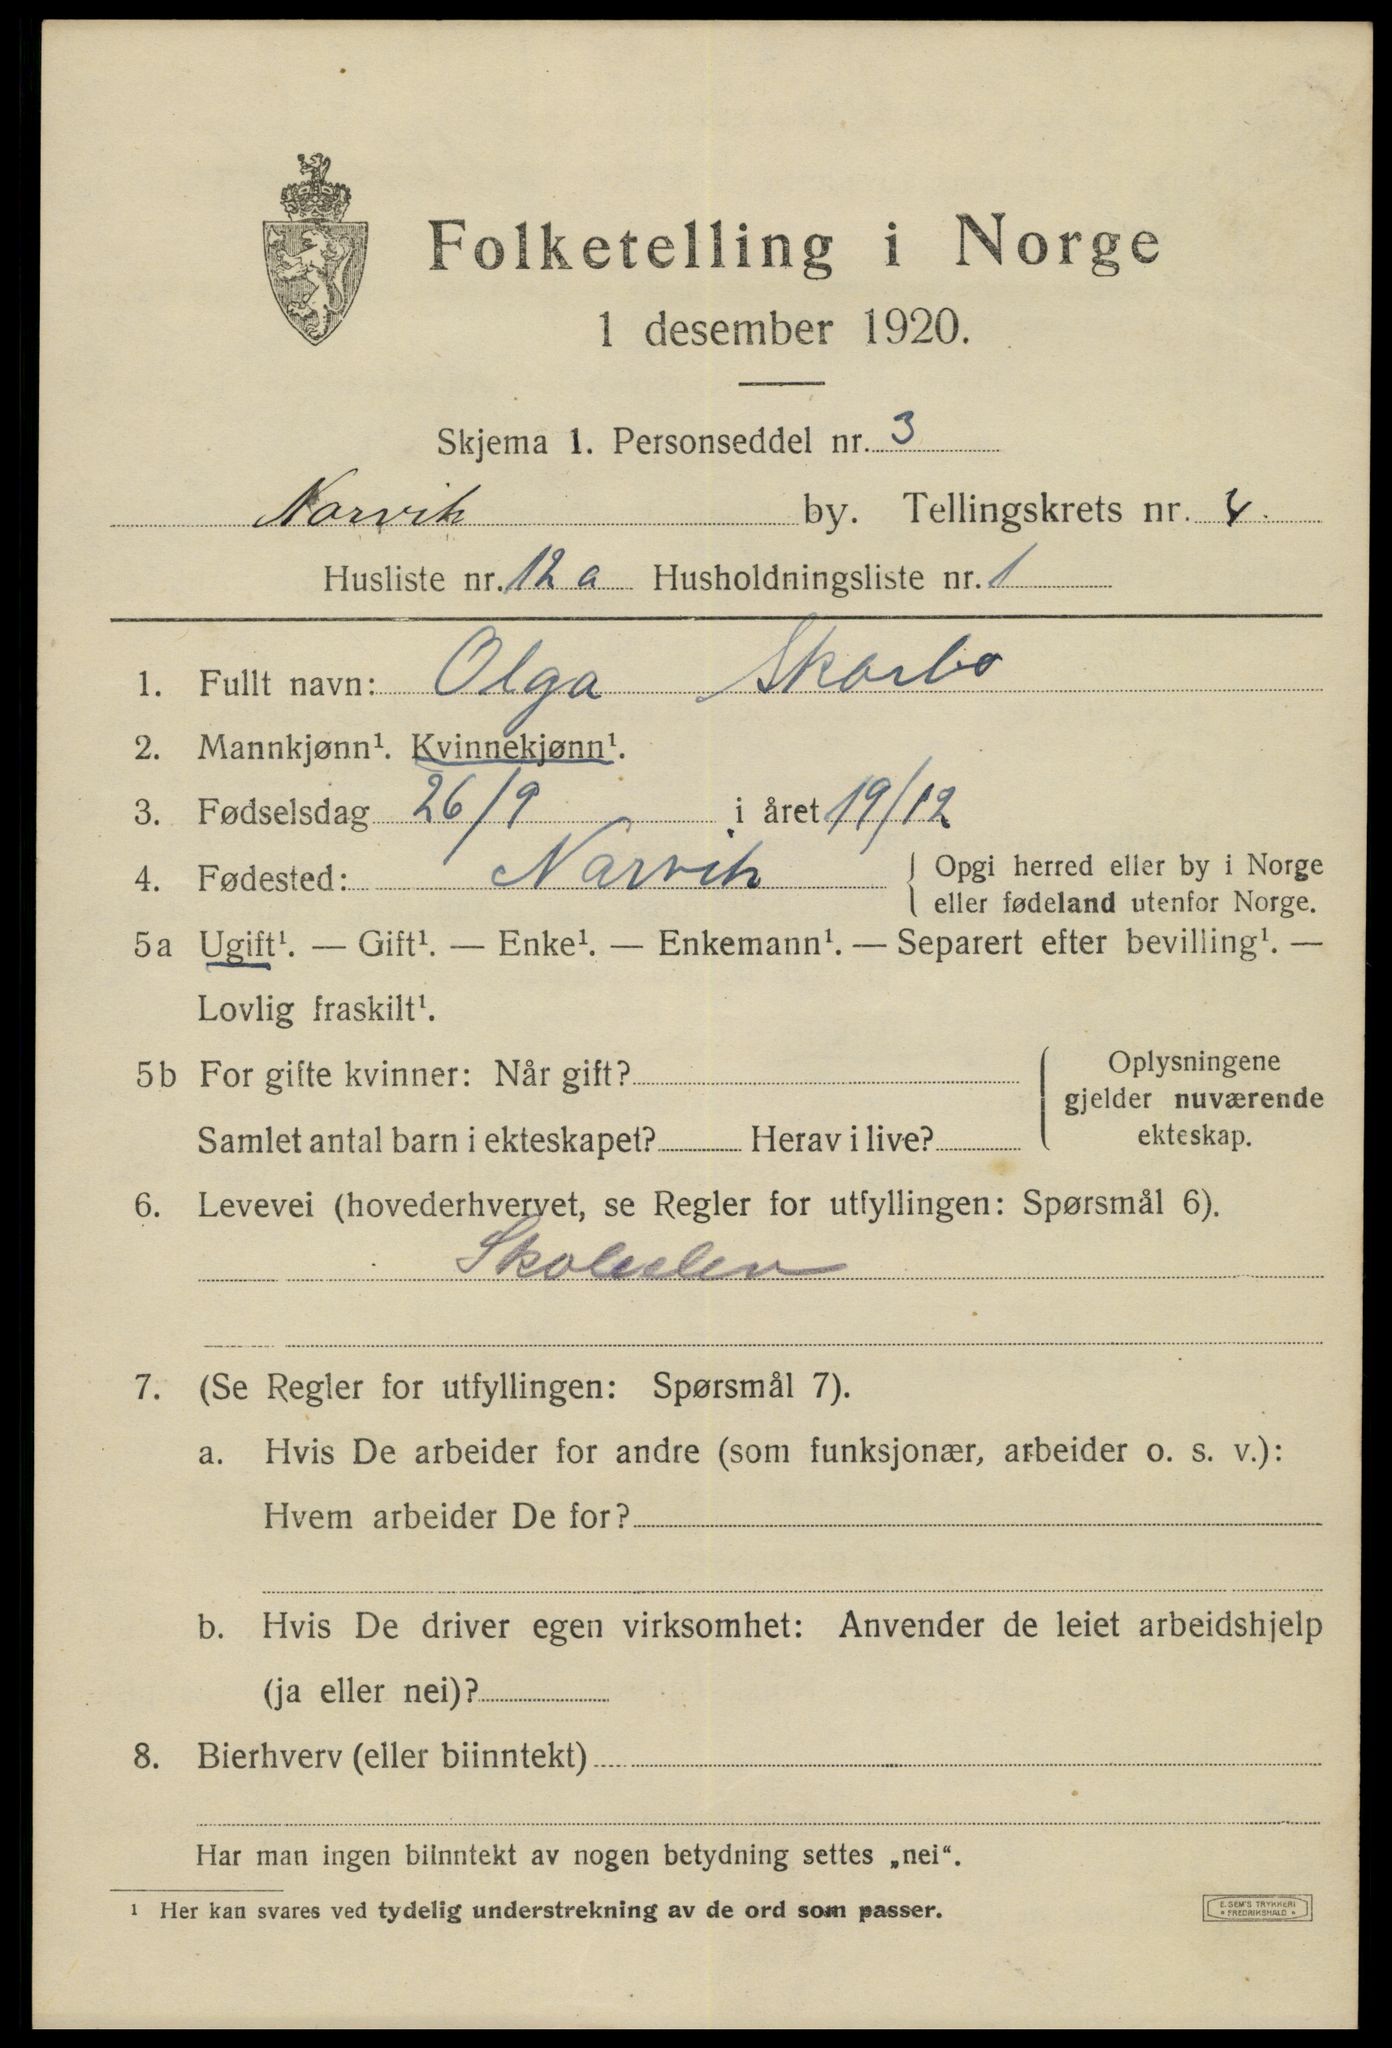 Folketelling i Norge
1 desember 1920.
Skjema 1. Personseddel nr. 3
Narvik by. Tellingskrets nr. 4.
Husliste nr. 12 a Husholdningsliste nr. 1
1. Fullt navn: Olga Skarbo
2. Mannkjønn¹. Kvinnekjønn¹.
3. Fødselsdag 26/9 i året 19/12
4. Fødested: Narvik { Opgi herred eller by i Norge
eller fødeland utenfor Norge.
5a Ugift¹. — Gift¹. — Enke¹. — Enkemann¹. — Separert efter bevilling¹. —
Lovlig fraskilt¹.
5b For gifte kvinner: Når gift? { Oplysningene
gjelder nuværende
Samlet antal barn i ekteskapet? Herav i live? ekteskap.
6. Levevei (hovederhvervet, se Regler for utfyllingen: Spørsmål 6).
Skoleelev
7. (Se Regler for utfyllingen: Spørsmål 7).
a. Hvis De arbeider for andre (som funksjonær, arbeider o. s. v.):
Hvem arbeider De for?
b. Hvis De driver egen virksomhet: Anvender de leiet arbeidshjelp
(ja eller nei)?
8. Bierhverv (eller biinntekt)
Har man ingen biinntekt av nogen betydning settes „nei“.
¹ Her kan svares ved tydelig understrekning av de ord som passer.
E. SEM'S TRYKKERI
• FREDRIKSHALD •